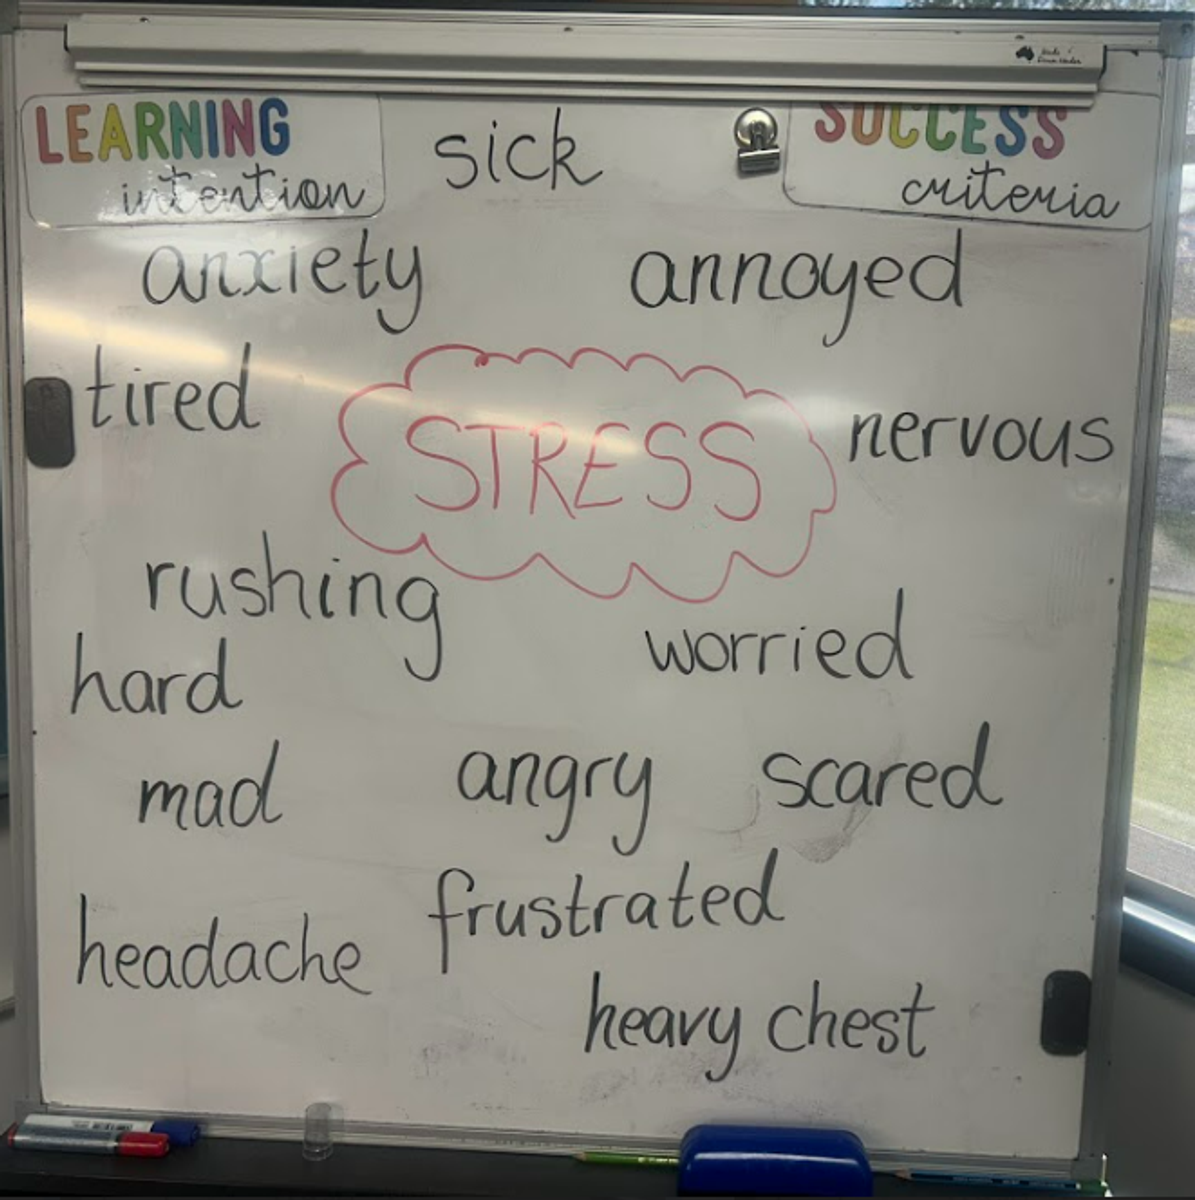 LEARNING
intention
SUCCESS
criteria
sick
anxiety
annoyed
tired
STRESS
nervous
rushing
worried
hard
mad
angry
scared
frustrated
headache
heavy chest